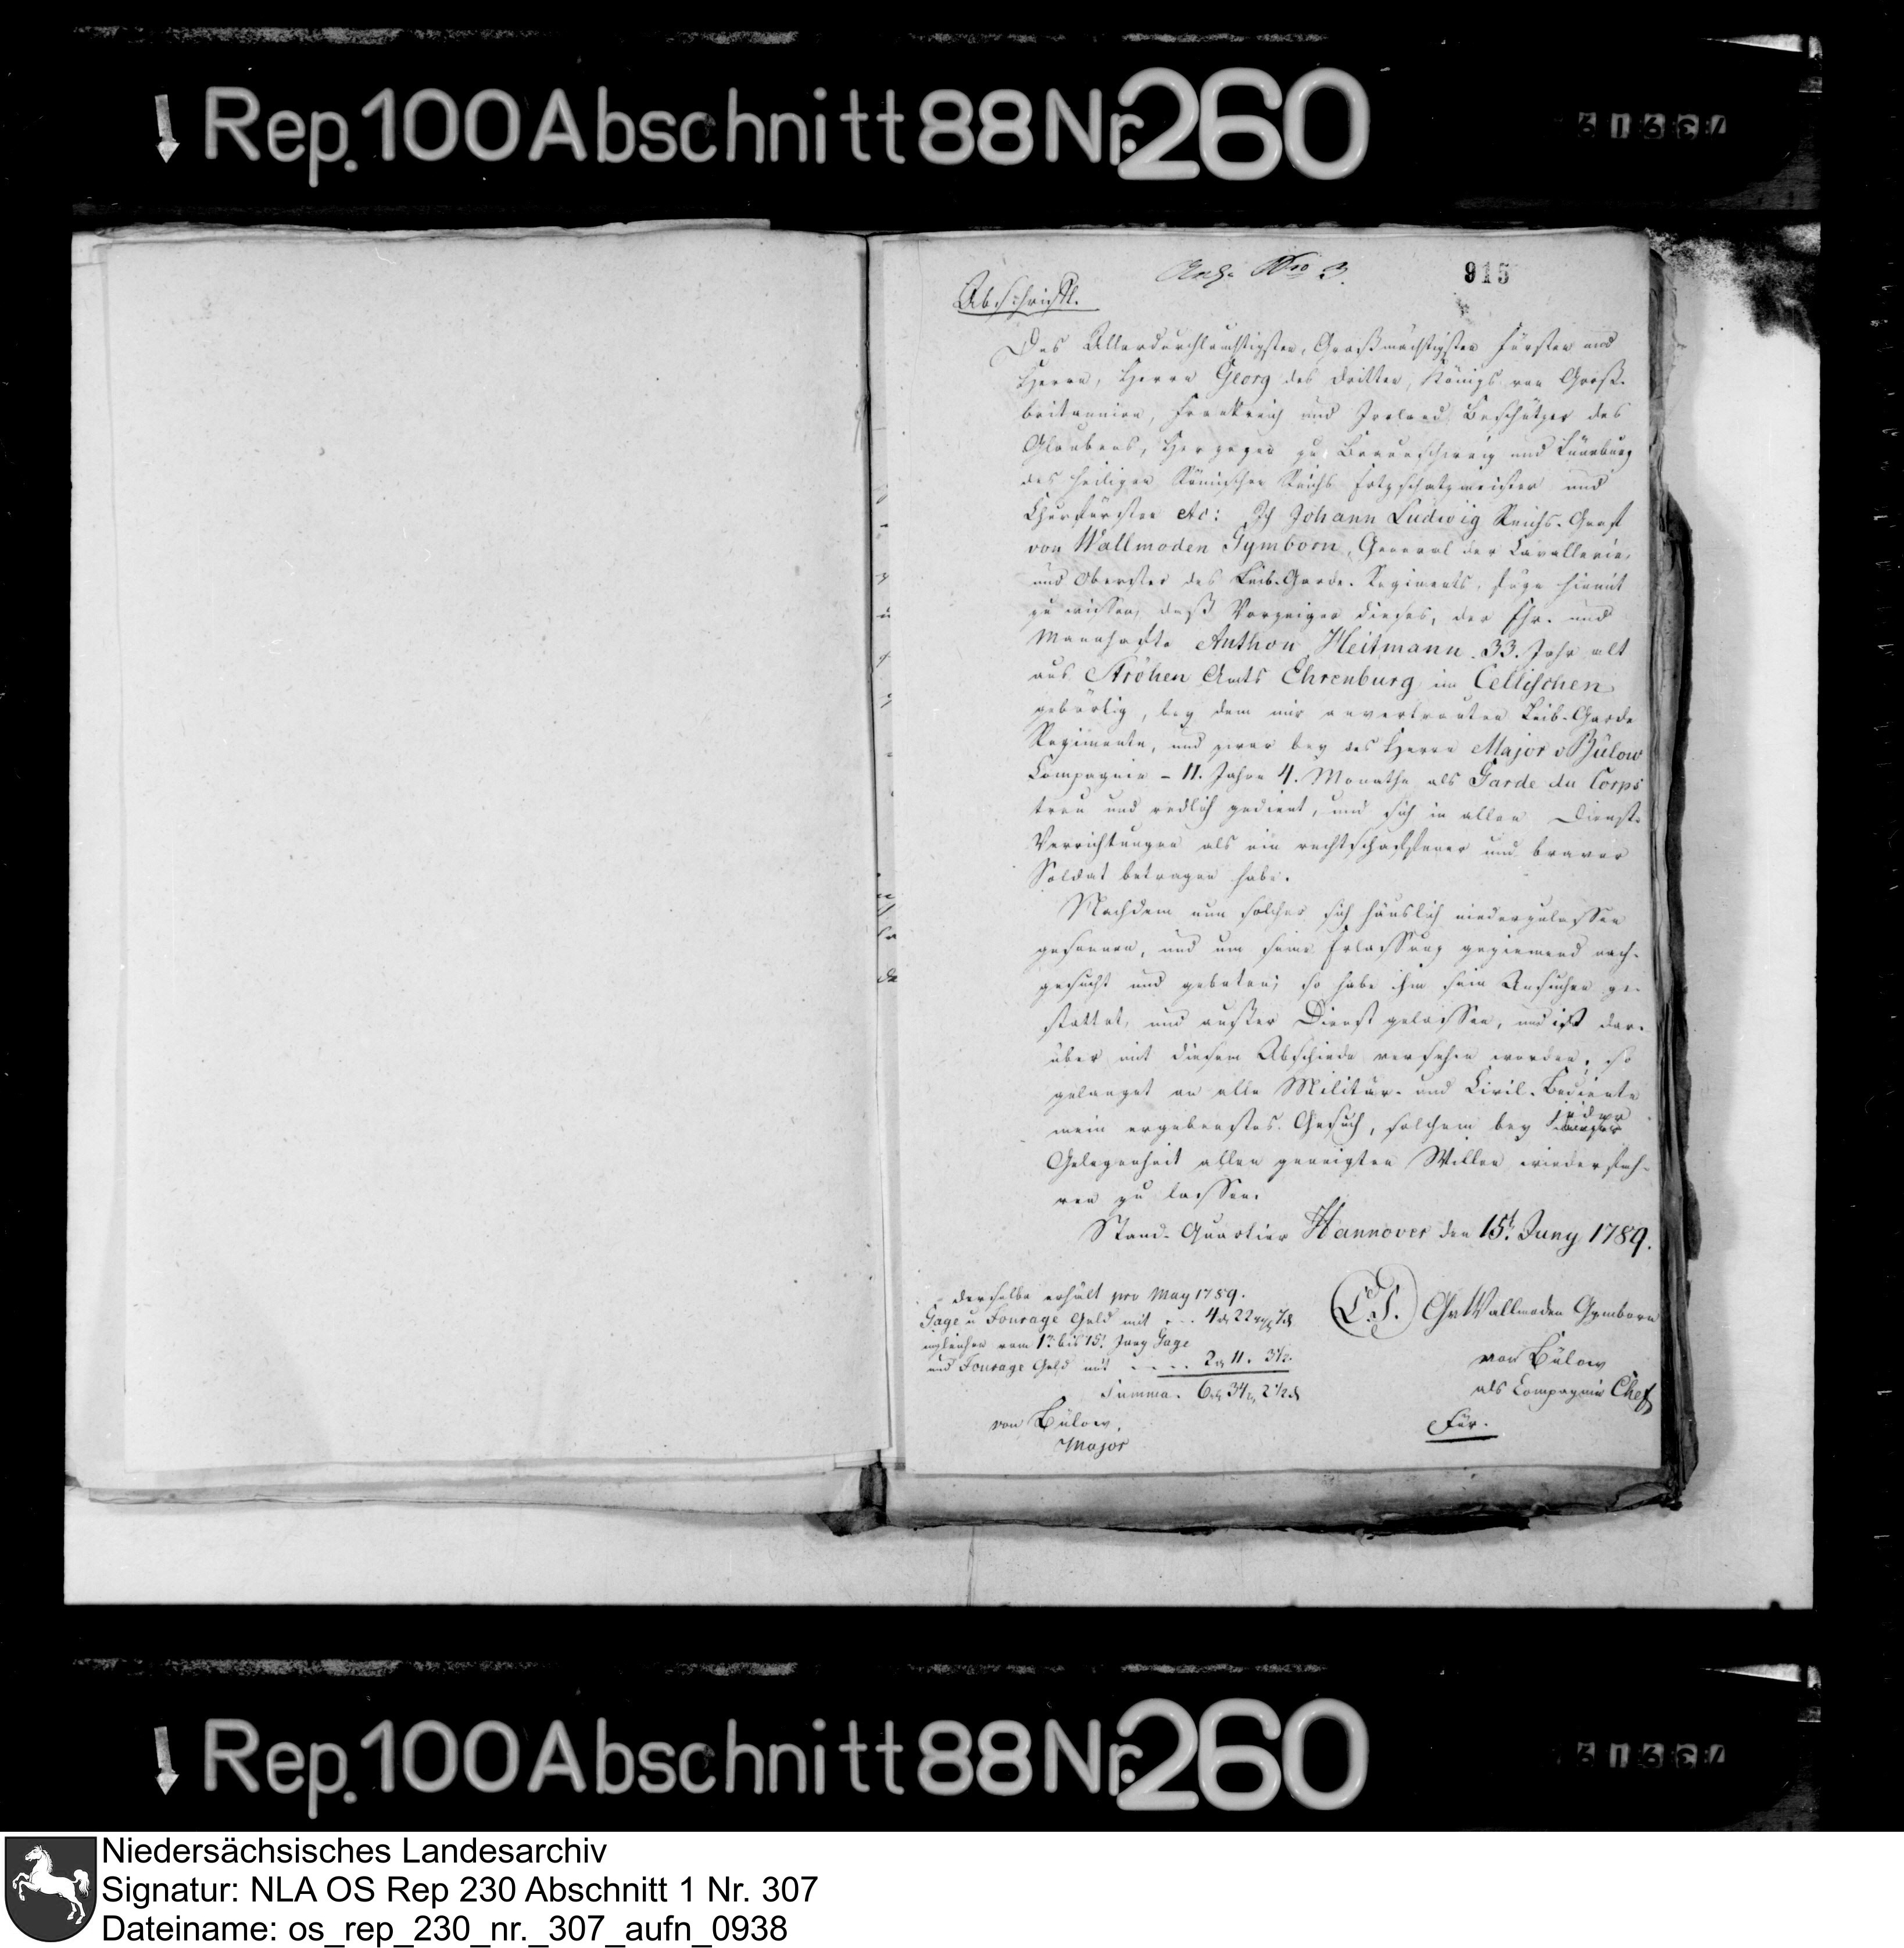 Rep. 100 Abschnitt 88 Nr. 260
73919
Anl. Nro 3.
915
Abschriftl.
Des Allerdurchlauchtigsten, Großmächtigsten Fürsten und
Herrn, Herrn Georg des dritten, Königs von Groß-
britannien, Frankreich und Irrland, Beschützer des
Glaubens, Herzogen zu Braunschweig und Lüneburg
des heiligen Römischen Reichs Ertzschatzmeister und
Churfürsten etc: Ich Johann Ludwig Reichs-Graf
von Wallmoden Gymborn, General der Cavallerie,
und Oberster des Leib-Garde-Regiments, füge hiemit
zu wissen, daß Vorzeiger dieses, der Ehr- und
Mannhafte Anthon Heitmann 33. Jahr alt
aus Ströhen Amts Ehrenburg im Cellischen
gebürtig, bey dem mir anvertrauten Leib-Garde
Regimente, und zwar bey des Herrn Major v Bülow
Compagnie - 11. Jahre 4. Monathe als Garde du Corps
treu und redlich gedient, und sich in allen Dienst-
Verrichtungen als ein rechtschaffener und braver
Soldat betragen habe.
Nachdem nun solcher sich häuslich niederzulassen
gesonnen, und um seine Erlassung geziemend nach-
gesucht und gebeten; so habe ihm sein Ansuchen ge-
stattet, und außer Dienst gelassen, und ist dar-
über mit diesem Abschiede versehen worden; so
gelanget an alle Militär- und Civil-Bediente
mein ergebenstes Gesuch, solchem bey jeder
Gelegenheit allen geneigten Willen wiederfah-
ren zu lassen.
Stand-Quartier Hannover den 15t. Juny 1789.
derselbe erhält pro May 1789.
Gage u Fourage Geld mit - - - 4 22 7
ingleichen vom 1ten bis 15t. Juny Gage
und Fourage Geld mit - - - - 2 11. 3 1/2
Summa. 6 34 2 1/2
von Bülow,
Major
L.S. Gr v Wallmoden Gymborn
von Bülow
als Compagnie Chef
Für.
Rep. 100 Abschnitt 88 Nr. 260
73919
Niedersächsisches Landesarchiv
Signatur: NLA OS Rep 230 Abschnitt 1 Nr. 307
Dateiname: os_rep_230_nr._307_aufn_0938